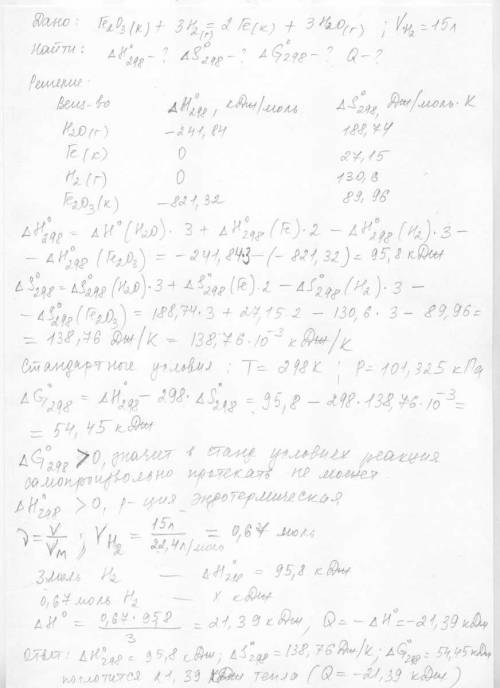 Дано: Fe₂O₃(к) + 3H₂(г) = 2Fe(к) + 3H₂O(г) ; VH₂ = 15л
Найти: ΔH°298 - ? ΔS°298 - ? ΔG°298 - ? Q - ?
Решение.
Вещ-во ΔH°298, кДж/моль ΔS°298, Дж/моль·К
H₂O(г) -241,84 188,74
Fe(к) 0 27,15
H₂(г) 0 130,6
Fe₂O₃(к) -821,32 89,96
ΔH°298 = ΔH°(H₂O)·3 + ΔH°298(Fe)·2 - ΔH°298(H₂)·3 -
- ΔH°298(Fe₂O₃) = -241,84·3 - (-821,32) = 95,8 кДж
ΔS°298 = ΔS°298(H₂O)·3 + ΔS°298(Fe)·2 - ΔS°298(H₂)·3 -
- ΔS°298(Fe₂O₃) = 188,74·3 + 27,15·2 - 130,6·3 - 89,96 =
= 138,76 Дж/К = 138,76·10⁻³ кДж/К
Стандартные условия: T = 298К ; P = 101,325 кПа
ΔG°298 = ΔH°298 - 298·ΔS°298 = 95,8 - 298·138,76·10⁻³ =
= 54,45 кДж
ΔG°298 > 0, значит в станд условиях реакция
самопроизвольно протекать не может
ΔH°298 > 0, р-ция эндотермическая
ν = V/Vm ; νH₂ = 15л/22,4л/моль = 0,67 моль
3 моль H₂ — ΔH°298 = 95,8 кДж
0,67 моль H₂ — x кДж
ΔH° = 0,67·95,8/3 = 21,39 кДж, Q = -ΔH° = -21,39 кДж
Ответ: ΔH°298 = 95,8 кДж; ΔS°298 = 138,76 Дж/К; ΔG°298 = 54,45 кДж
поглотится 21,39 кДж тепла (Q = -21,39 кДж)